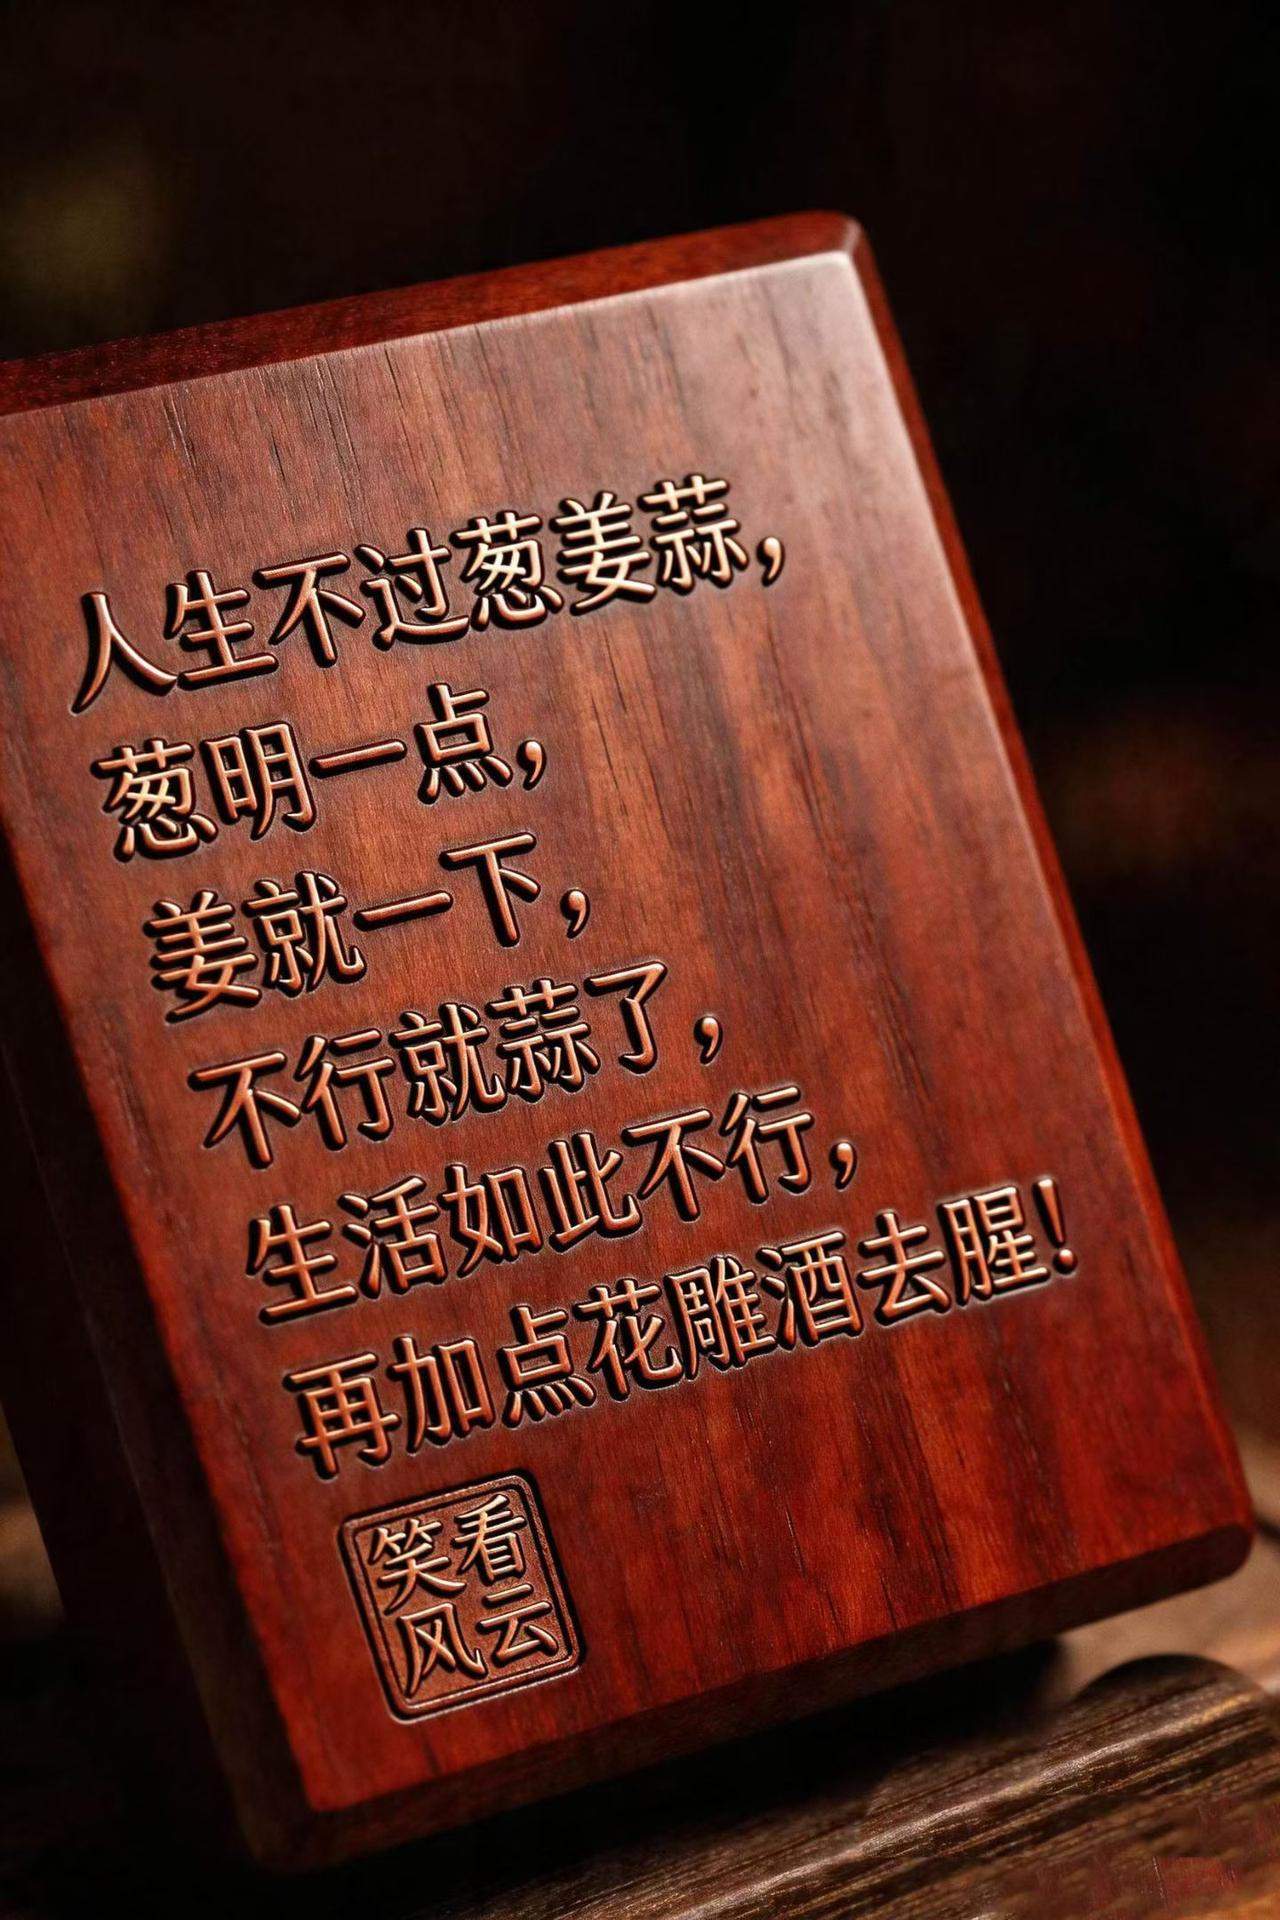 人生不过葱姜蒜，
葱明一点，
姜就一下，
不行就蒜了，
生活如此不行，
再加点花雕酒去腥！
笑看
风云